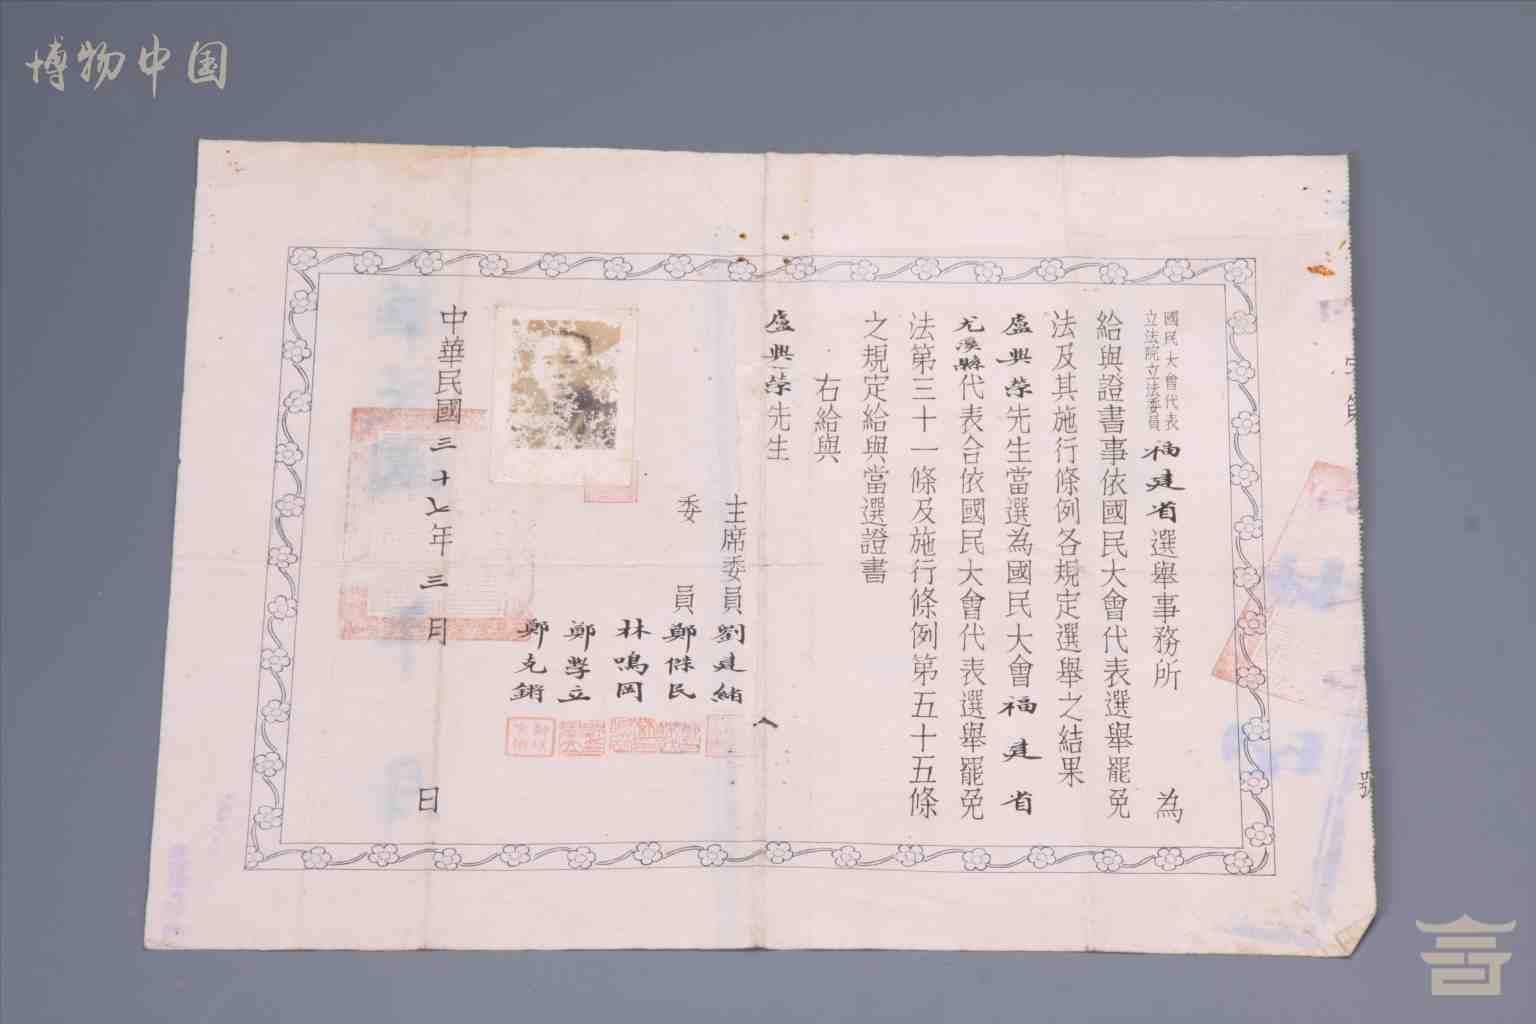 博物中国
國民大會代表
立法院立法委員
福建省選舉事務所 為
給與證書事依國民大會代表選舉罷免
法及其施行條例各規定選舉之結果
盧興榮先生當選為國民大會福建省
尤溪縣代表合依國民大會代表選舉罷免
法第三十一條及施行條例第五十五條
之規定給與當選證書
右給與
盧興榮先生
主席委員劉建緒
委員鄭傑民
林鳴岡
鄭學立
鄭克鏘
中華民國三十七年三月 日
號